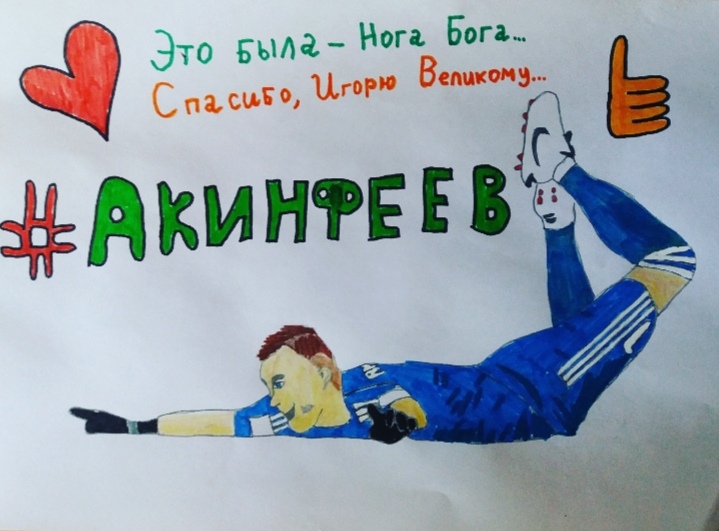 Это была – Нога Бога...
Спасибо, Игорю Великому...
#АКИНФЕЕВ